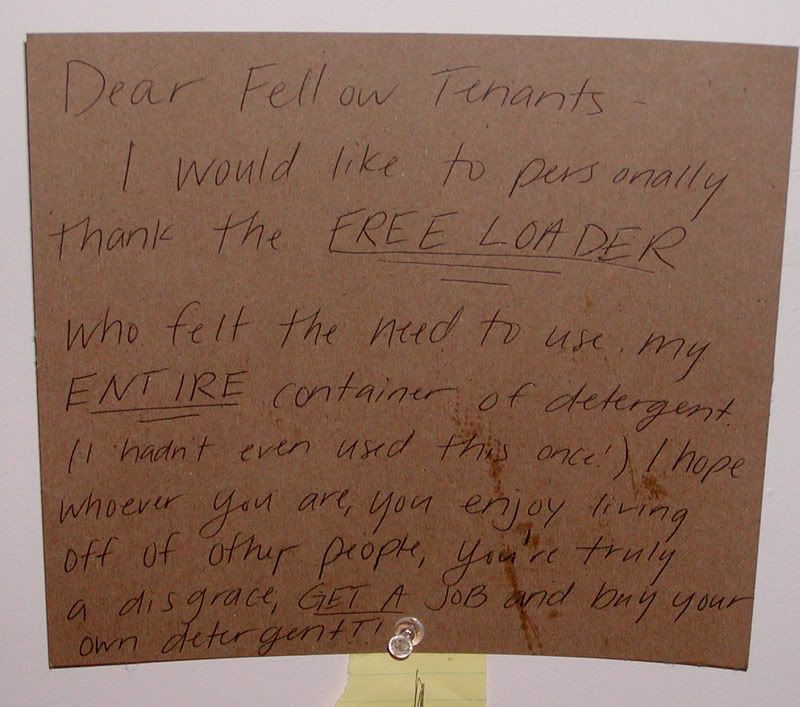 Dear Fellow Tenants -
I would like to personally
thank the FREE LOADER
who felt the need to use my
ENTIRE container of detergent.
(I hadn't even used this once!) I hope
whoever you are, you enjoy living
off of other people, you're truly
a disgrace, GET A JOB and buy your
own detergent!!